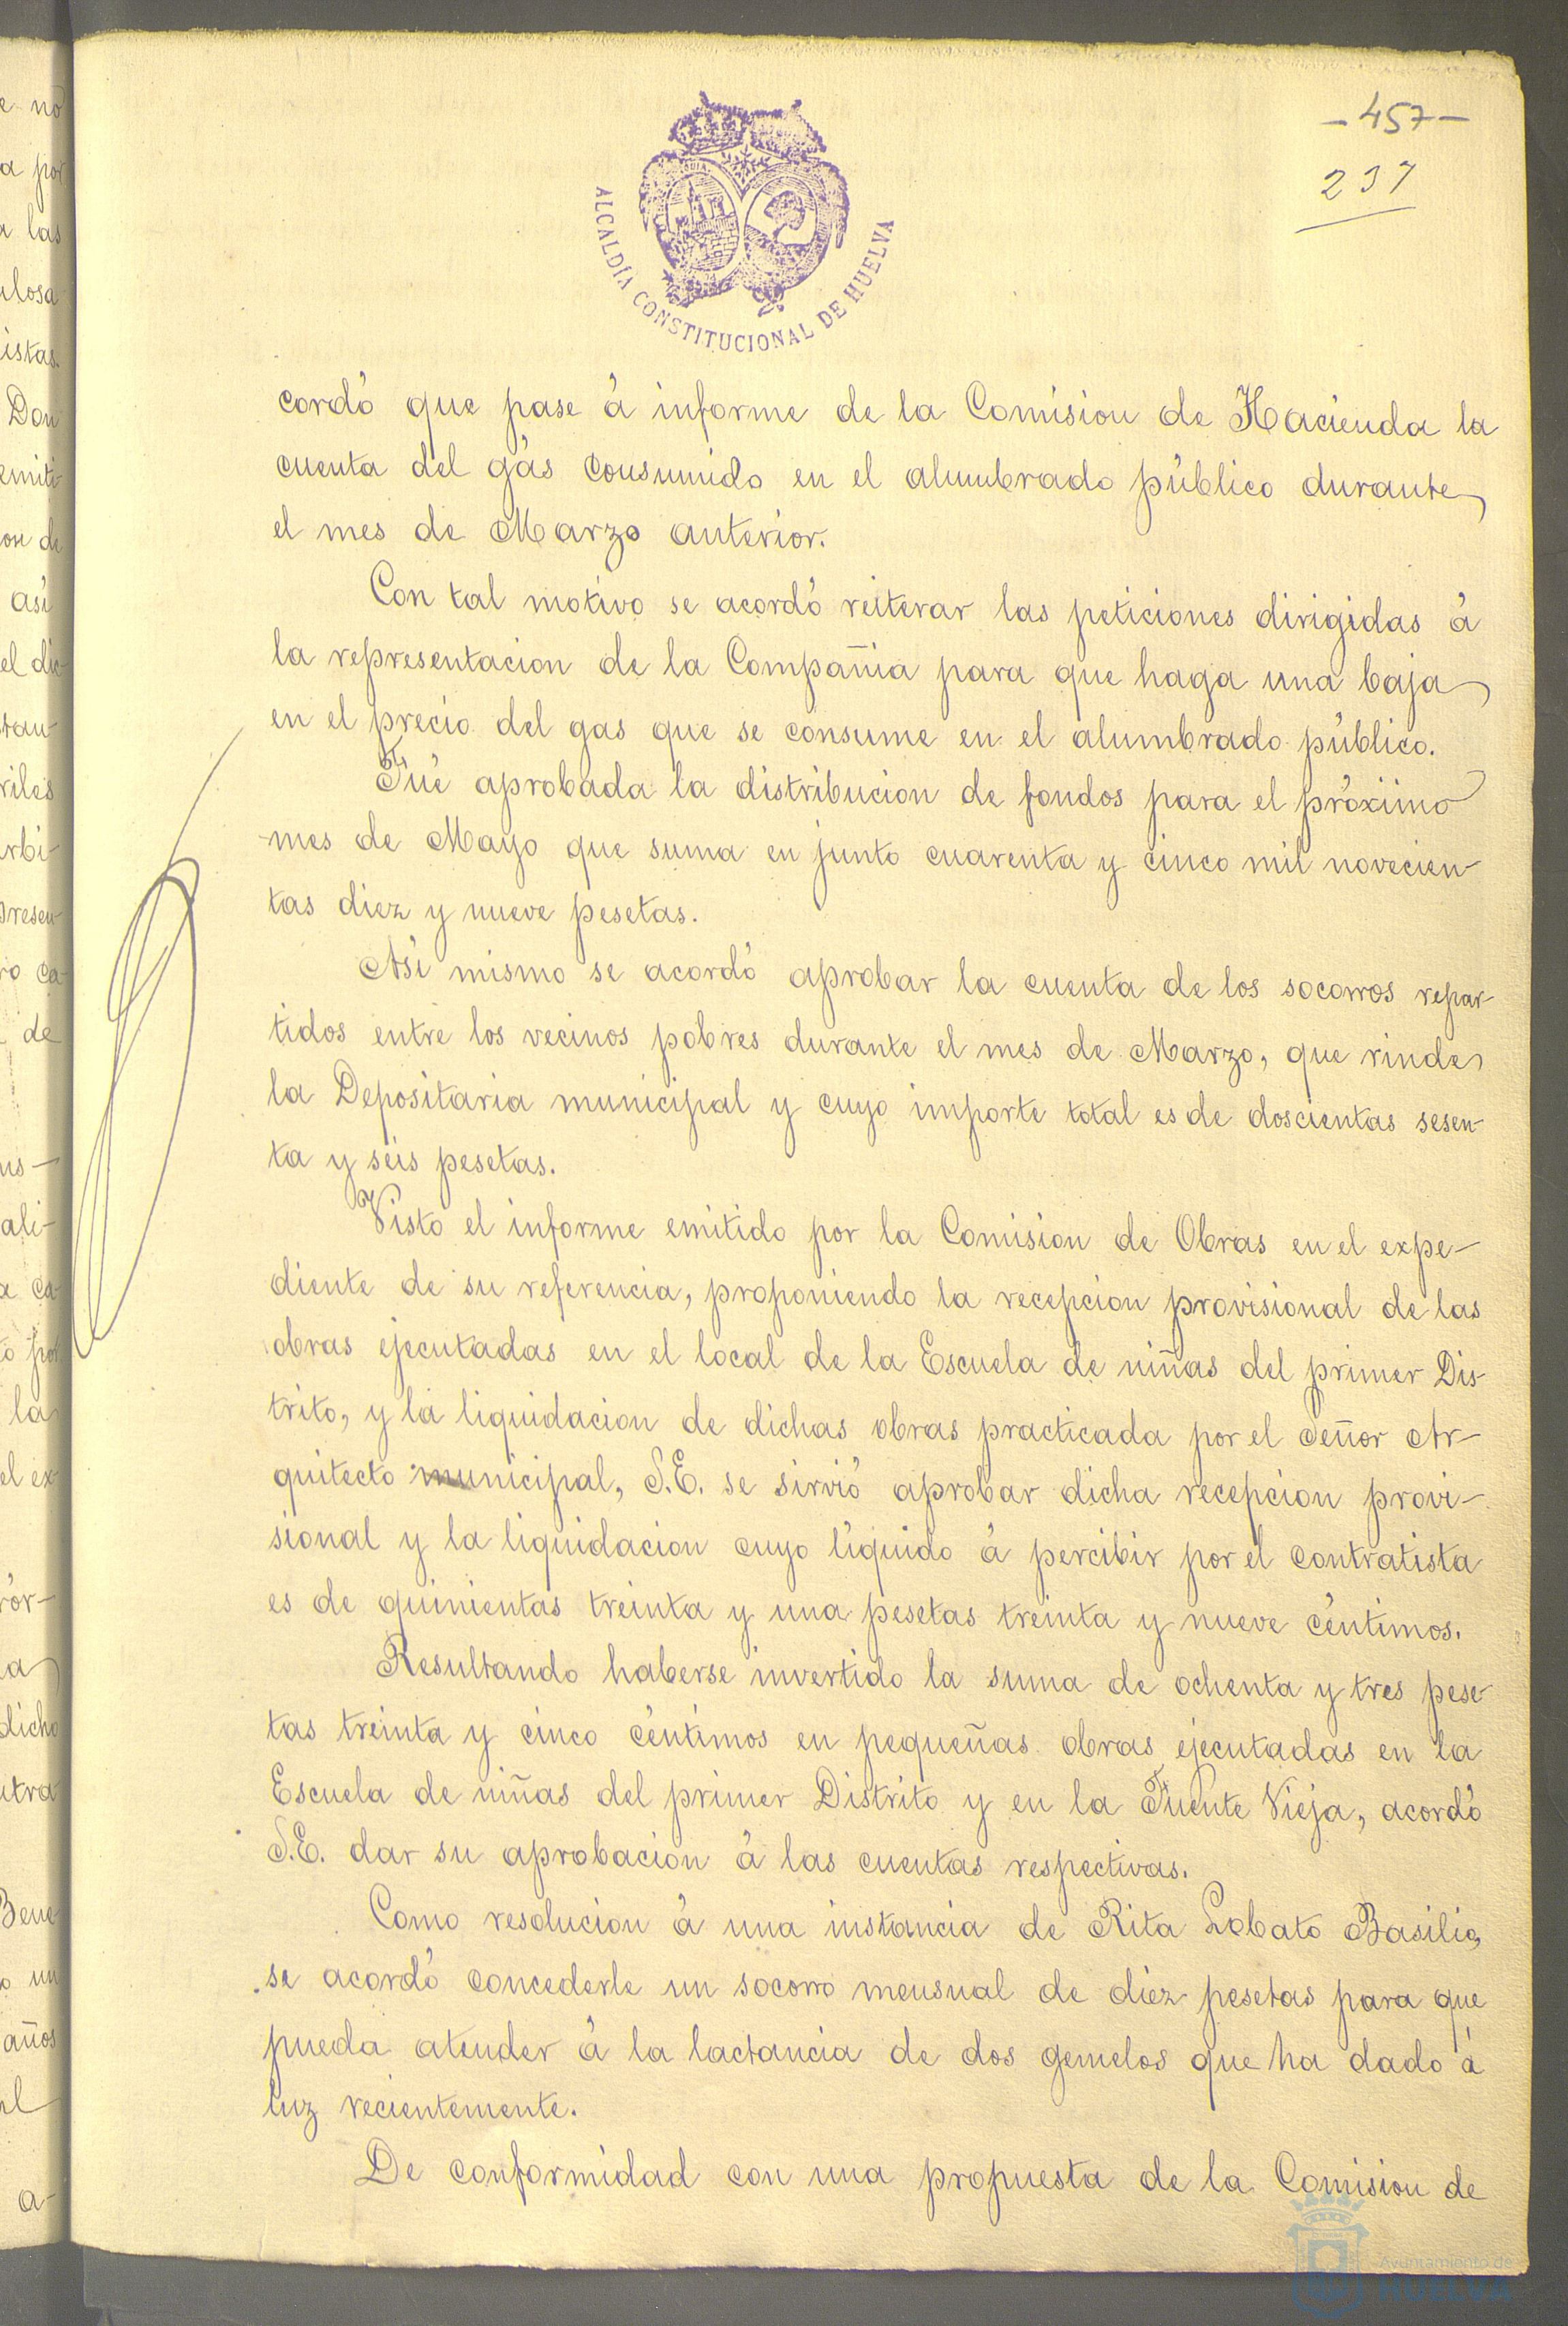 -457-
237
ALCALDÍA CONSTITUCIONAL DE HUELVA
cordó que pase á informe de la Comision de Hacienda la
cuenta del gás consumido en el alumbrado público durante
el mes de Marzo anterior.
Con tal motivo se acordó reiterar las peticiones dirigidas á
la representacion de la Compañia para que haga una baja
en el precio del gas que se consume en el alumbrado público.
Fué aprobada la distribucion de fondos para el próximo
mes de Mayo que suma en junto cuarenta y cinco mil novecien-
tas diez y nueve pesetas.
Así mismo se acordó aprobar la cuenta de los socorros repar-
tidos entre los vecinos pobres durante el mes de Marzo, que rinde
la Depositaria municipal y cuyo importe total es de doscientas sesen-
ta y seis pesetas.
Visto el informe emitido por la Comision de Obras en el expe-
diente de su referencia, proponiendo la recepcion provisional de las
obras ejecutadas en el local de la Escuela de niñas del primer Dis-
trito, y la liquidacion de dichas obras practicada por el Señor Ar-
quitecto municipal, S.E. se sirvió aprobar dicha recepcion provi-
sional y la liquidacion cuyo líquido á percibir por el contratista
es de quinientas treinta y una pesetas treinta y nueve céntimos.
Resultando haberse invertido la suma de ochenta y tres pese-
tas treinta y cinco céntimos en pequeñas obras ejecutadas en la
Escuela de niñas del primer Distrito y en la Fuente Vieja, acordó
S.E. dar su aprobacion á las cuentas respectivas.
Como resolucion á una instancia de Rita Lobato Basilio,
se acordó concederle un socorro mensual de diez pesetas para que
pueda atender á la lactancia de dos gemelos que ha dado á
luz recientemente.
De conformidad con una propuesta de la Comision de
Ayuntamiento de
HUELVA